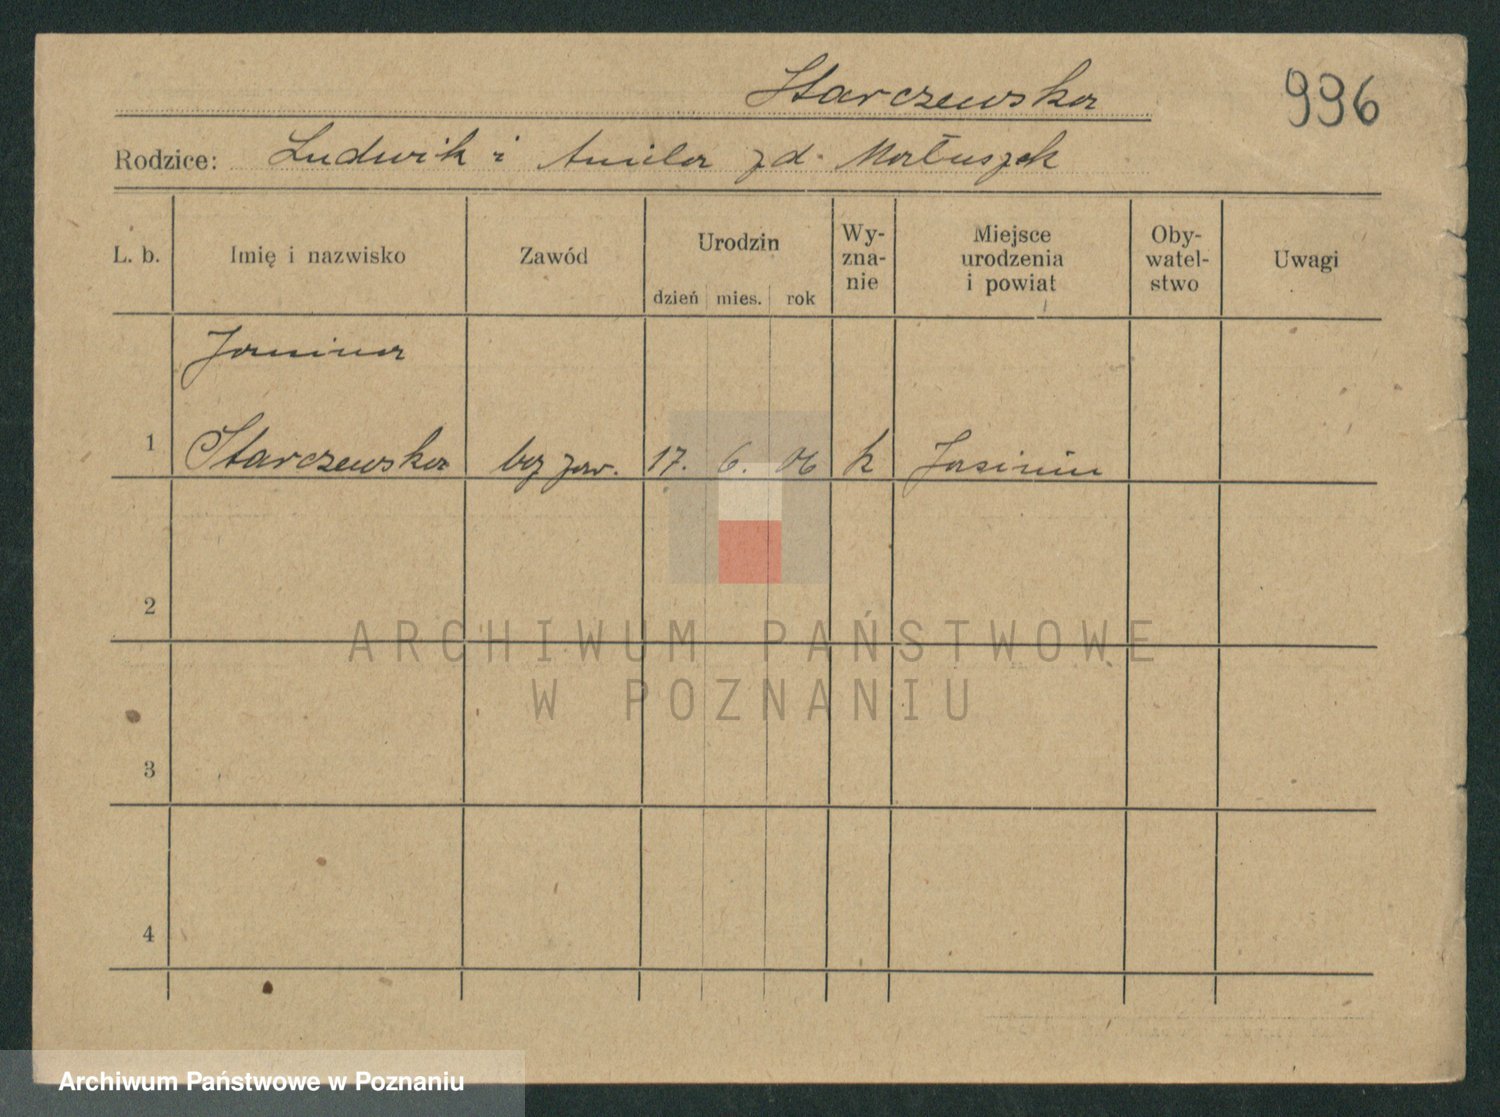 Starczewska
996
Rodzice: Ludwik i Aniela zd. Matuszak
L. b.
Imię i nazwisko
Zawód
Urodzin
dzień mies. rok
Wy-
zna-
nie
Miejsce
urodzenia
i powiat
Oby-
watel-
stwo
Uwagi
Janina
1 Starczewska bez zaw. 17. 6. 06 k Jasinin
2
3
4
ARCHIWUM PAŃSTWOWE
W POZNANIU
Archiwum Państwowe w Poznaniu